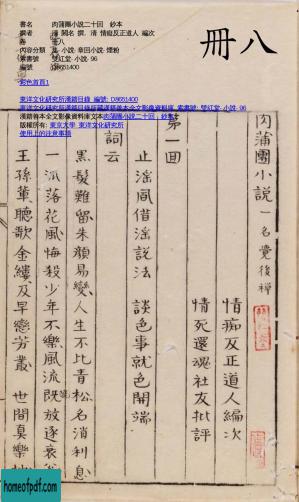 書名 肉蒲團小說二十回 鈔本
撰者 清 闕名 撰, 清 情癡反正道人 編次
卷 八
內容分類 集-小說-章回小說-煙粉
索書號 雙紅堂-小說-96
編號 D8651400
彩色首頁1
東洋文化研究所漢籍目錄 編號: D8651400
東洋文化研究所漢籍目錄所藏漢籍善本全文影像資料庫 索書號 雙紅堂-小說-96
漢籍善本全文影像資料庫文本肉蒲團小說二十回, 鈔本
版權所有: 東京大學 東洋文化研究所
使用上的注意事項
八冊
肉蒲團小說 一名覺後禪
情痴反正道人編次
情死還魂社友批評
第一回
止淫風借淫說法 談色事就色開端
詞云
黑髮難留朱顏易變人生不比青松名消利息
一派落花風悔殺少年不樂風流院放逐衰翁
王孫輩聽歌金縷及早戀芳叢 世間真樂地
homeofpdf.com